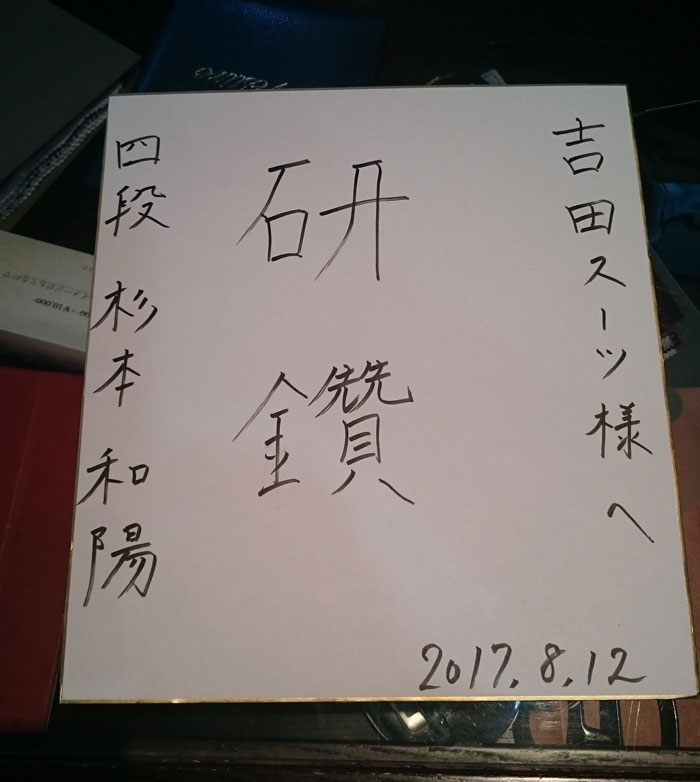 吉田スーツ様へ
研鑽
四段 杉本 和陽
2017.8.12